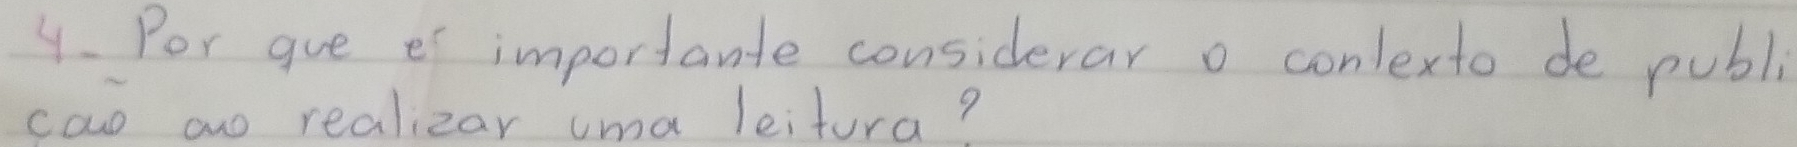 4- Por que é importante considerar o contexto de publi
cão ao realizar uma leitura?